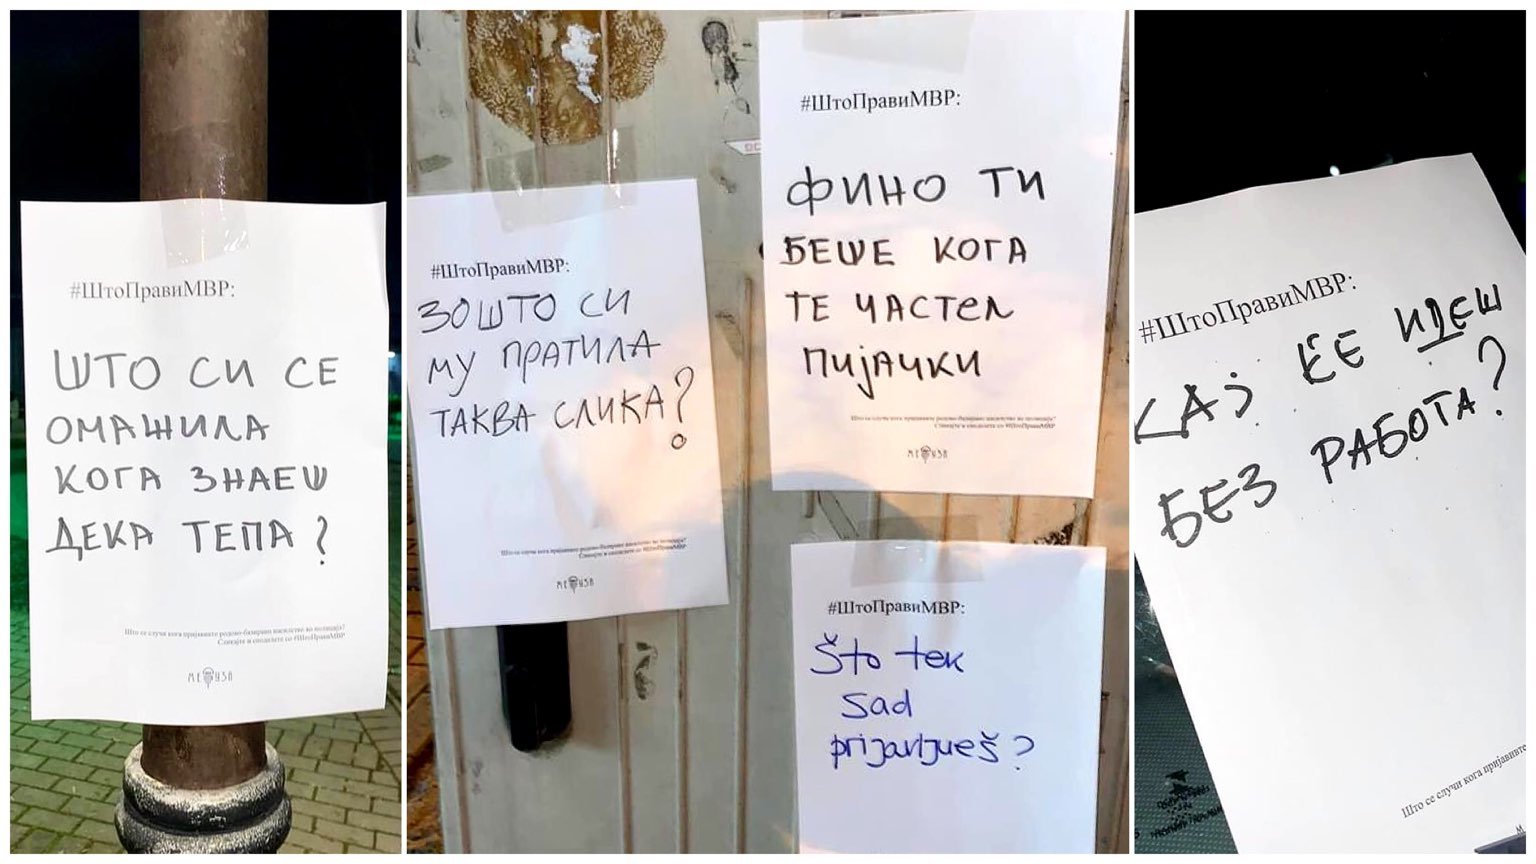 #ШтоПравиМВР:
ШТО СИ СЕ
ОМАЖИЛА
КОГА ЗНАЕШ
ДЕКА ТЕПА?
Што се случи кога пријавивте родово-базирано насилство во полиција?
Сликајте и споделете со #ШтоПравиМВР
#ШтоПравиМВР:
ЗОШТО СИ
МУ ПРАТИЛА
ТАКВА СЛИКА?
Што се случи кога пријавивте родово-базирано насилство во полиција?
Сликајте и споделете со #ШтоПравиМВР
#ШтоПравиМВР:
ФИНО ТИ
БЕШЕ КОГА
ТЕ ЧАСТЕЛ
ПИЈАЧКИ
Што се случи кога пријавивте родово-базирано насилство во полиција?
Сликајте и споделете со #ШтоПравиМВР
#ШтоПравиМВР:
Što tek
sad
prijavljueš?
#ШтоПравиМВР:
КАЈ ЌЕ ИДЕШ
БЕЗ РАБОТА?
Што се случи кога пријавивте